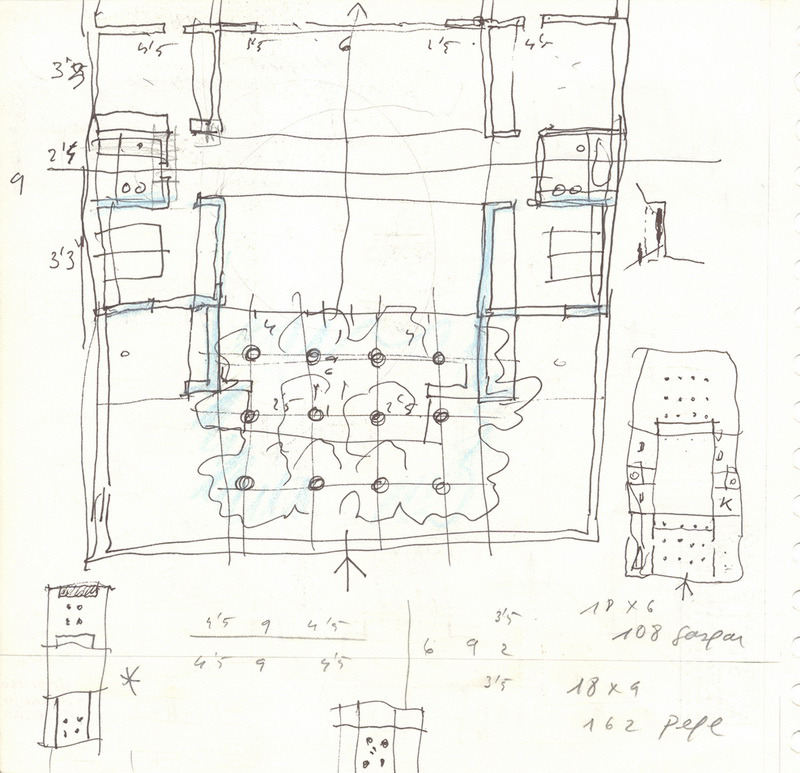 4'5 1'5 6 1'5 4'5
2'4
9
3'3
4 4
6
2'5 2'5
D D
D K
4'5 9 4'5
4'5 9 4'5
3'5
6 9 2
3'5
18 x 6
108 gaspar
18 x 9
162 pepe